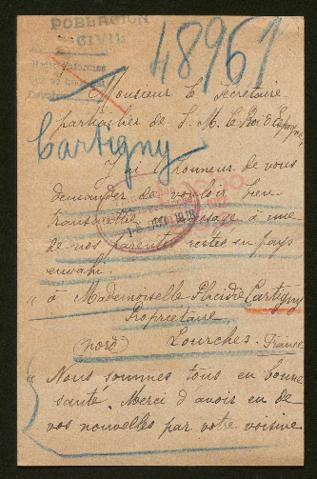 POBLACION
CIVIL
48961
Monsieur le Secrétaire
particulier de S. M. le Roi d'Espagne,
Cartigny
J'ai l'honneur de vous
demander de vouloir bien
transmettre message à une
de nos parentes restée en pays
envahi.
"à Mademoiselle Placidie Cartigny
Propriétaire
(Nord) Lourches. France
"Nous sommes tous en bonne
santé. Merci d'avoir eu de
vos nouvelles par votre voisine